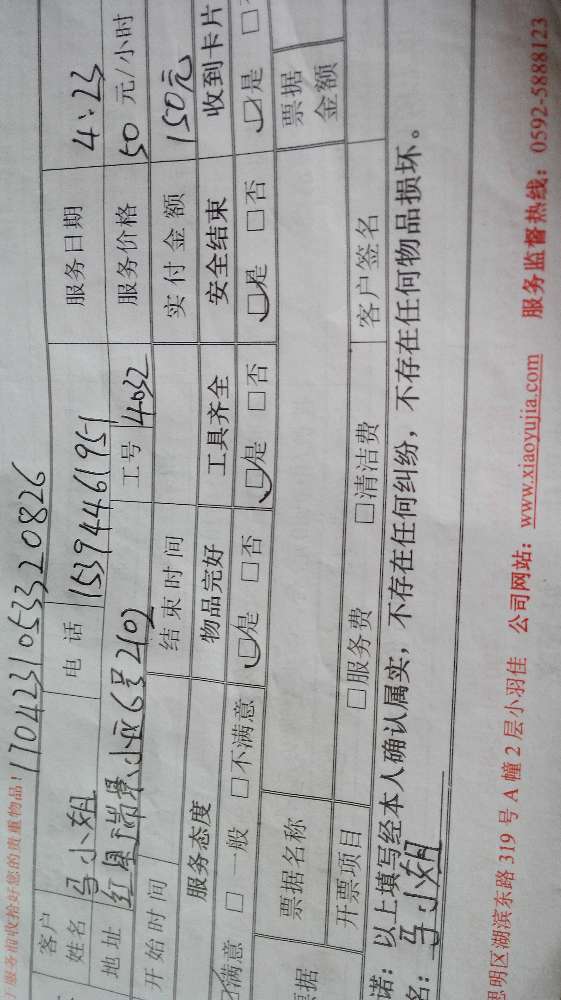 服务前收拾好您的贵重物品！ 17042310533320826
客户姓名 马小姐 电话 15394461951 服务日期 4:23
地址 红星瑞景小区6号2102 工号 4032 服务价格 50 元/小时
开始时间 结束时间 实付金额 150元
服务态度 物品完好 工具齐全 安全结束 收到卡片
满意 □一般 □不满意 □是 □否 □是 □否 □是 □否 □是
票据名称 票据金额
票据 开票项目 □服务费 □清洁费 客户签名
诺：以上填写经本人确认属实，不存在任何纠纷，不存在任何物品损坏。
名：马小姐
思明区湖滨东路 319 号 A 幢 2 层小羽佳 公司网站：www.xiaoyujia.com 服务监督热线：0592-5888123